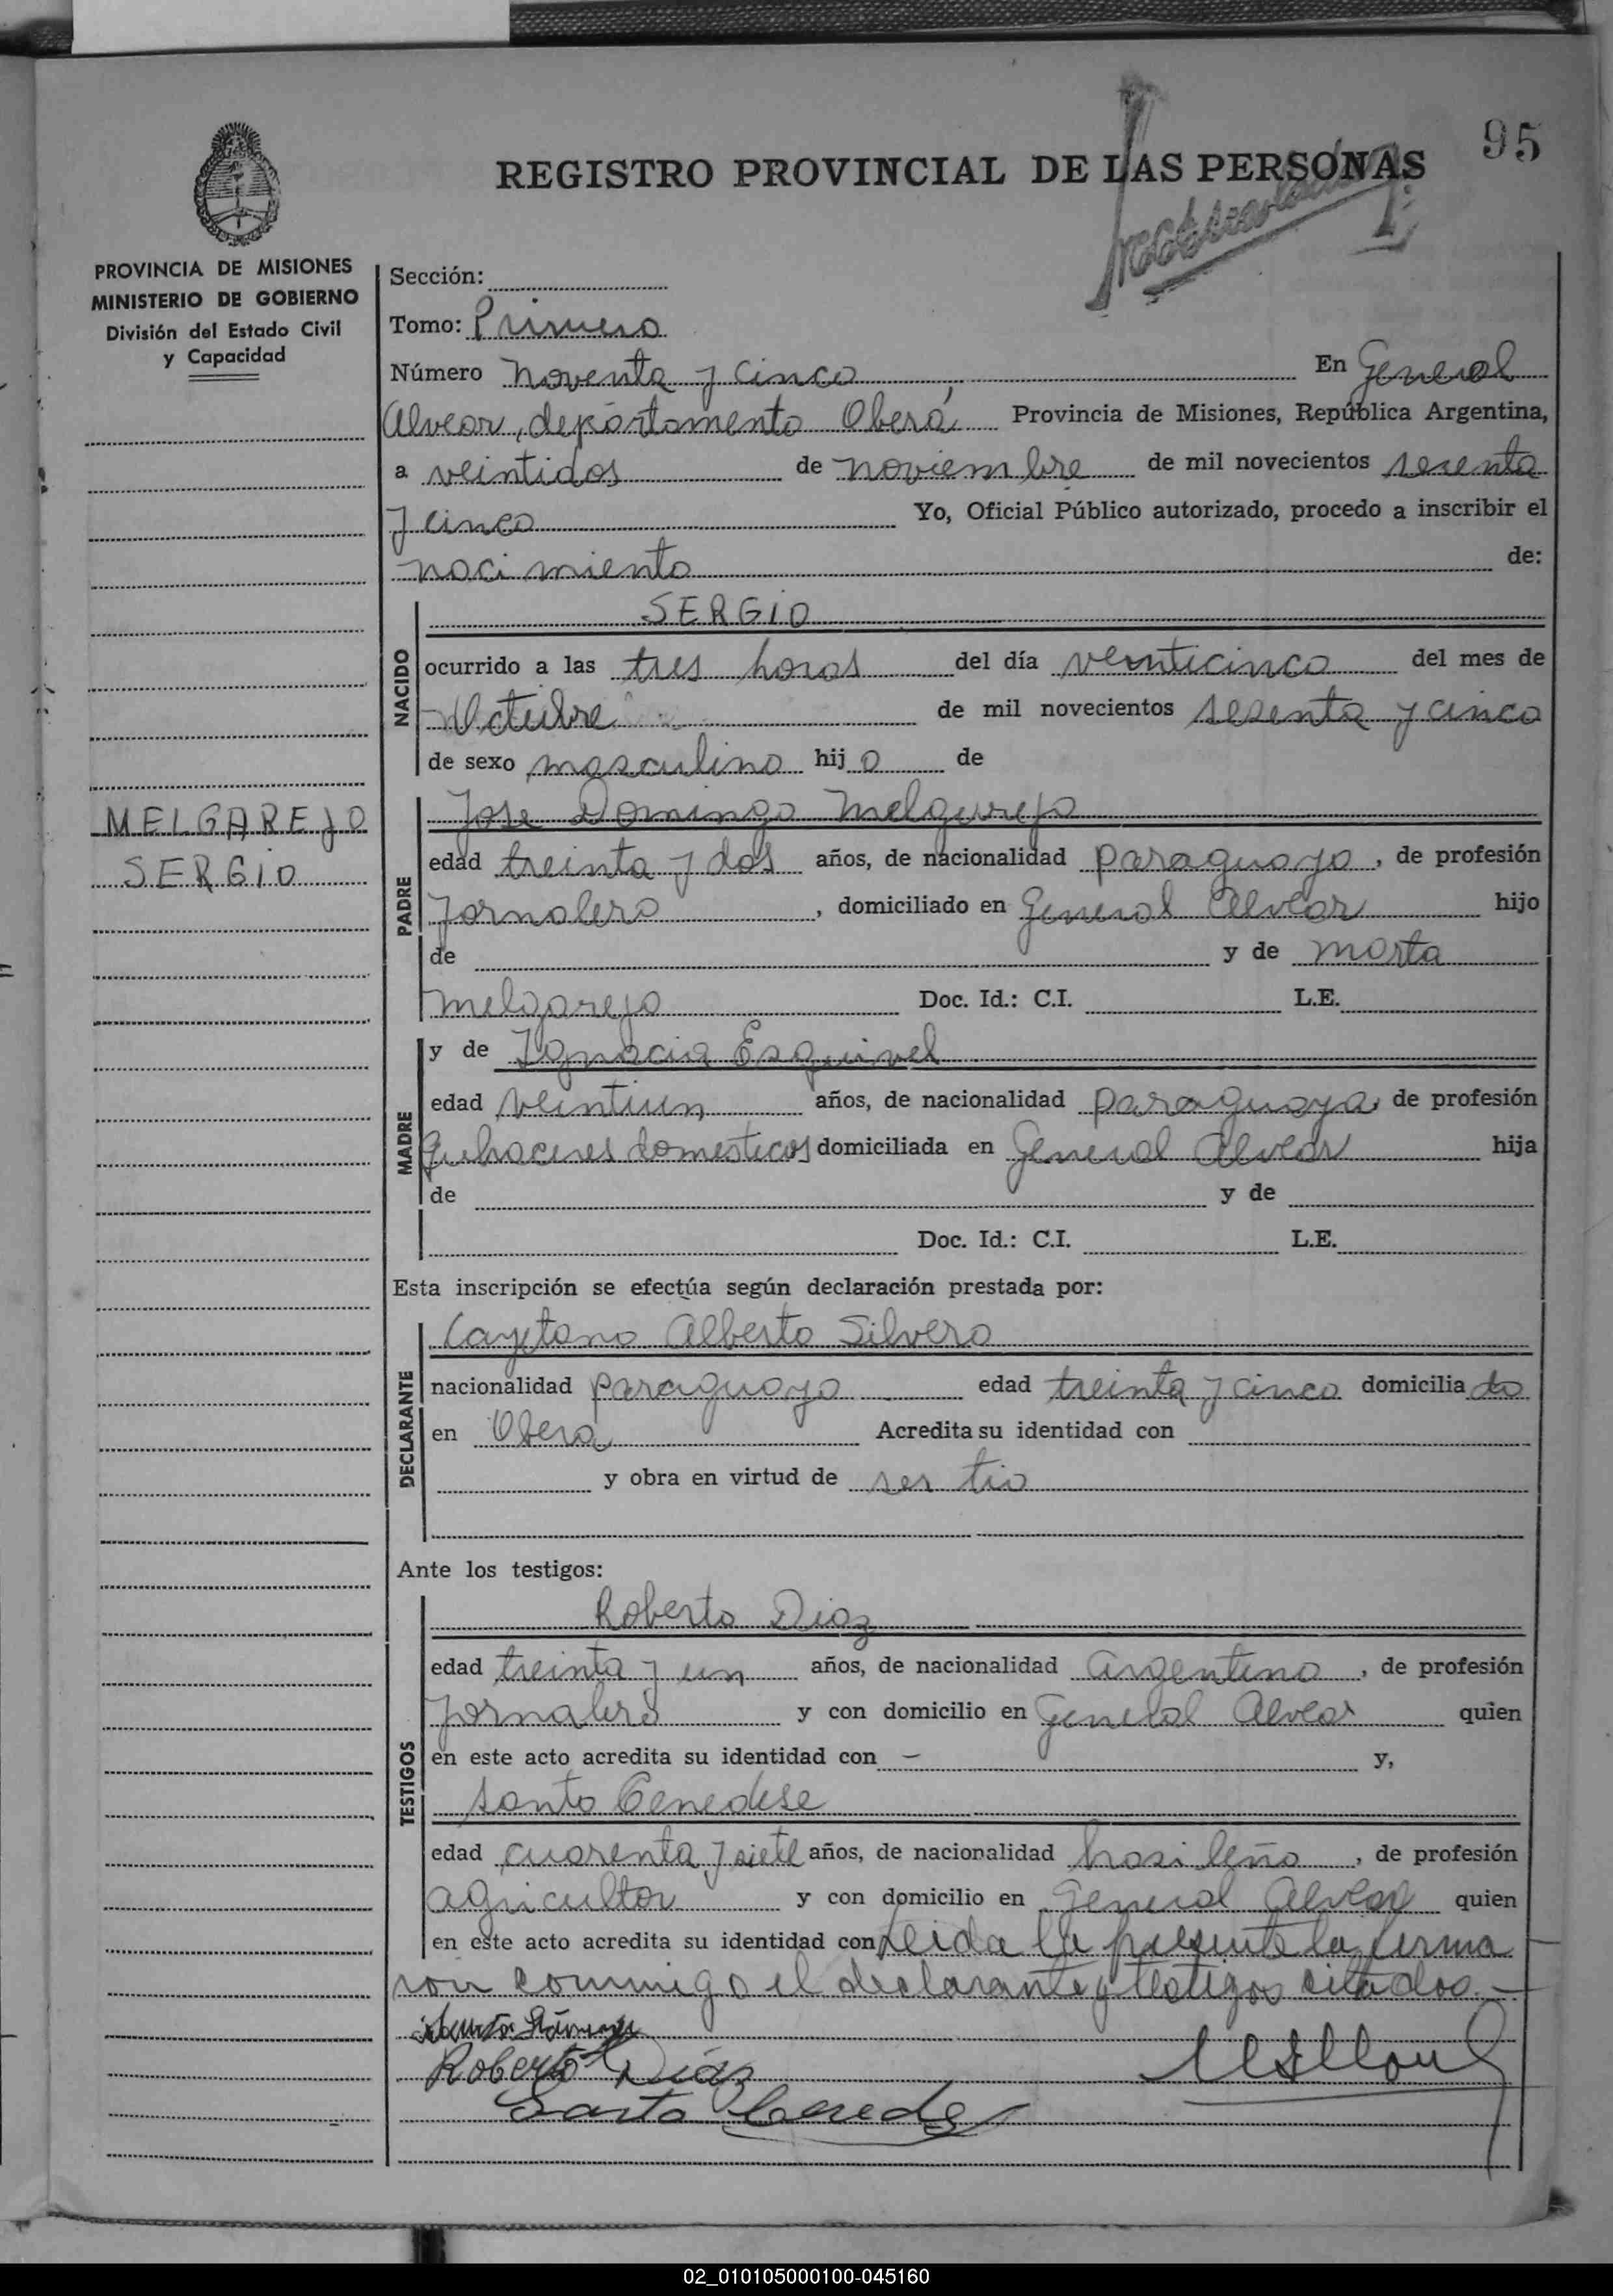 95
REGISTRO PROVINCIAL DE LAS PERSONAS
PROVINCIA DE MISIONES
MINISTERIO DE GOBIERNO
División del Estado Civil
y Capacidad
Sección:
Tomo: Primero
Número noventa y cinco En General
Alvear, departamento Oberá, Provincia de Misiones, República Argentina,
a veintidos de noviembre de mil novecientos sesenta
y cinco Yo, Oficial Público autorizado, procedo a inscribir el
nacimiento de:
NACIDO
SERGIO
ocurrido a las tres horas del día veinticinco del mes de
Octubre de mil novecientos sesenta y cinco
de sexo masculino hijo de
MELGAREJO
SERGIO
PADRE
Jose Domingo Melgarejo
edad treinta y dos años, de nacionalidad paraguayo, de profesión
Jornalero, domiciliado en General Alvear hijo
de y de Marta
Melgarejo Doc. Id.: C.I. L.E.
MADRE
y de Ignacia Esquivel
edad veintiun años, de nacionalidad paraguaya, de profesión
quehaceres domesticos domiciliada en General Alvear hija
de y de
Doc. Id.: C.I. L.E.
Esta inscripción se efectúa según declaración prestada por:
DECLARANTE
Cayetano Alberto Silvero
nacionalidad paraguayo edad treinta y cinco domiciliado
en Oberá Acredita su identidad con
y obra en virtud de ser tio
Ante los testigos:
TESTIGOS
Roberto Diaz
edad treinta y un años, de nacionalidad Argentino, de profesión
Jornalero y con domicilio en General Alvear quien
en este acto acredita su identidad con — y,
Santo Cenedese
edad cuarenta y siete años, de nacionalidad brasileño, de profesión
agricultor y con domicilio en General Alvear quien
en este acto acredita su identidad con Leida la presente la firma
ron conmigo el declarante y testigos citados.—
Roberto Diaz
Santo
02_010105000100-045160